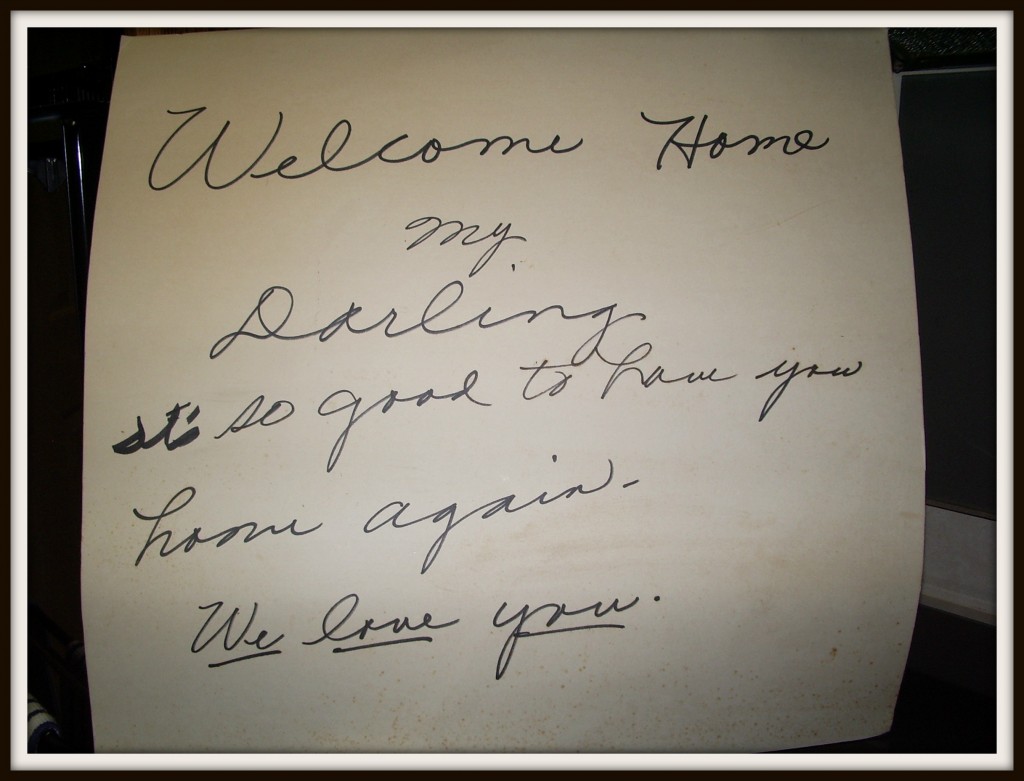 Welcome Home
my
Darling
it's so good to have you
home again.
We love you.